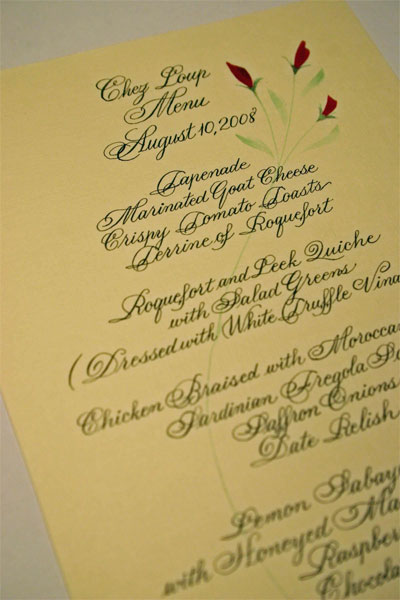 Chez Loup
Menu
August 10, 2008
Tapenade
Marinated Goat Cheese
Crispy Tomato Toasts
Terrine of Roquefort
Roquefort and Leek Quiche
with Salad Greens
(Dressed with White Truffle Vina
Chicken Braised with Morocca
Sardinian Fregola Pa
Saffron Onions
Date Relish
Lemon Sabay
with Honeyed Ma
Raspber
Chocola